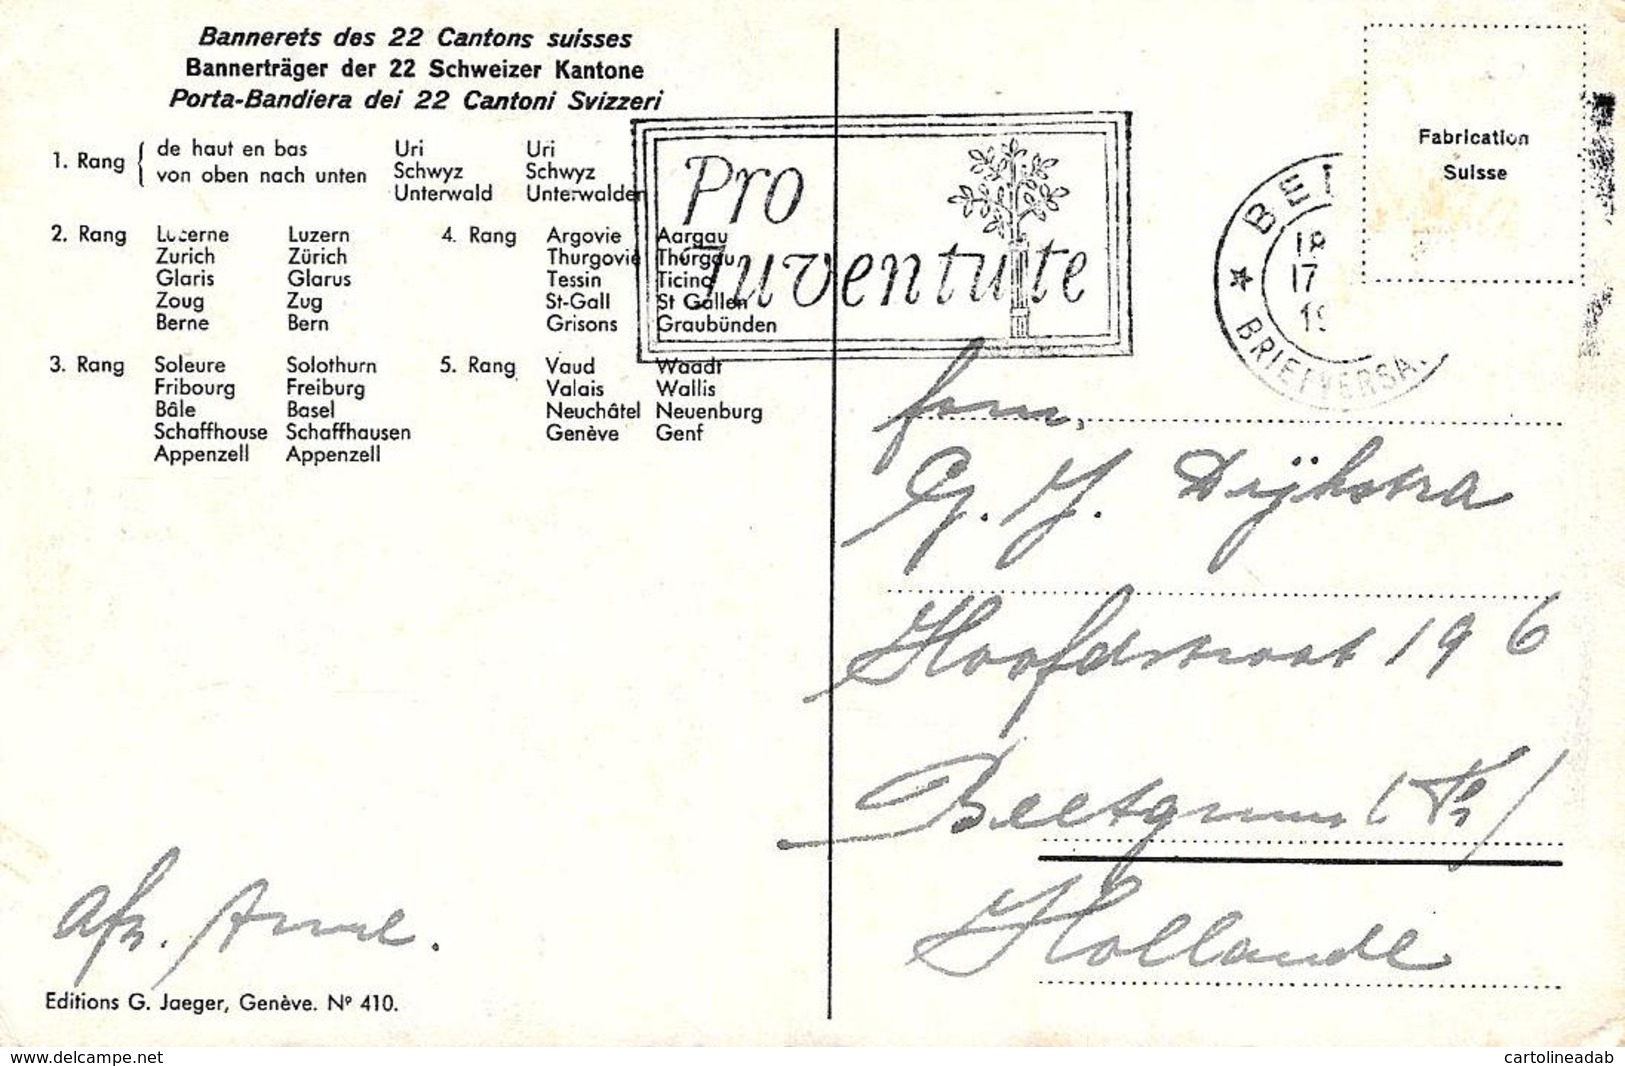 Bannerets des 22 Cantons suisses
Bannerträger der 22 Schweizer Kantone
Porta-Bandiera dei 22 Cantoni Svizzeri
1. Rang { de haut en bas Uri Uri
von oben nach unten Schwyz Schwyz
Unterwald Unterwalden
2. Rang Lucerne Luzern
Zurich Zürich
Glaris Glarus
Zoug Zug
Berne Bern
3. Rang Soleure Solothurn
Fribourg Freiburg
Bâle Basel
Schaffhouse Schaffhausen
Appenzell Appenzell
4. Rang Argovie Aargau
Thurgovie Thurgau
Tessin Ticino
St-Gall St Gallen
Grisons Graubünden
5. Rang Vaud Waadt
Valais Wallis
Neuchâtel Neuenburg
Genève Genf
Pro
Juventute
BE
18
17
19
BRIEFVERSA.
Fabrication
Suisse
fam.
G. Y. Dijkstra
Hoofdstraat 196
Beetgum (Fr)
Hollande
afz.
Editions G. Jaeger, Genève. Nº 410.
www.delcampe.net
cartolineadab